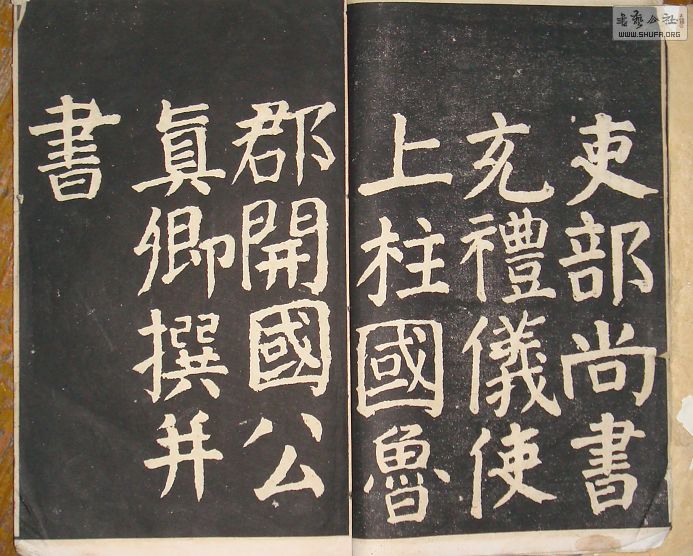 吏部尚書
充禮儀使
上柱國魯
郡開國公
真卿撰并
書
WWW.SHUFA.ORG